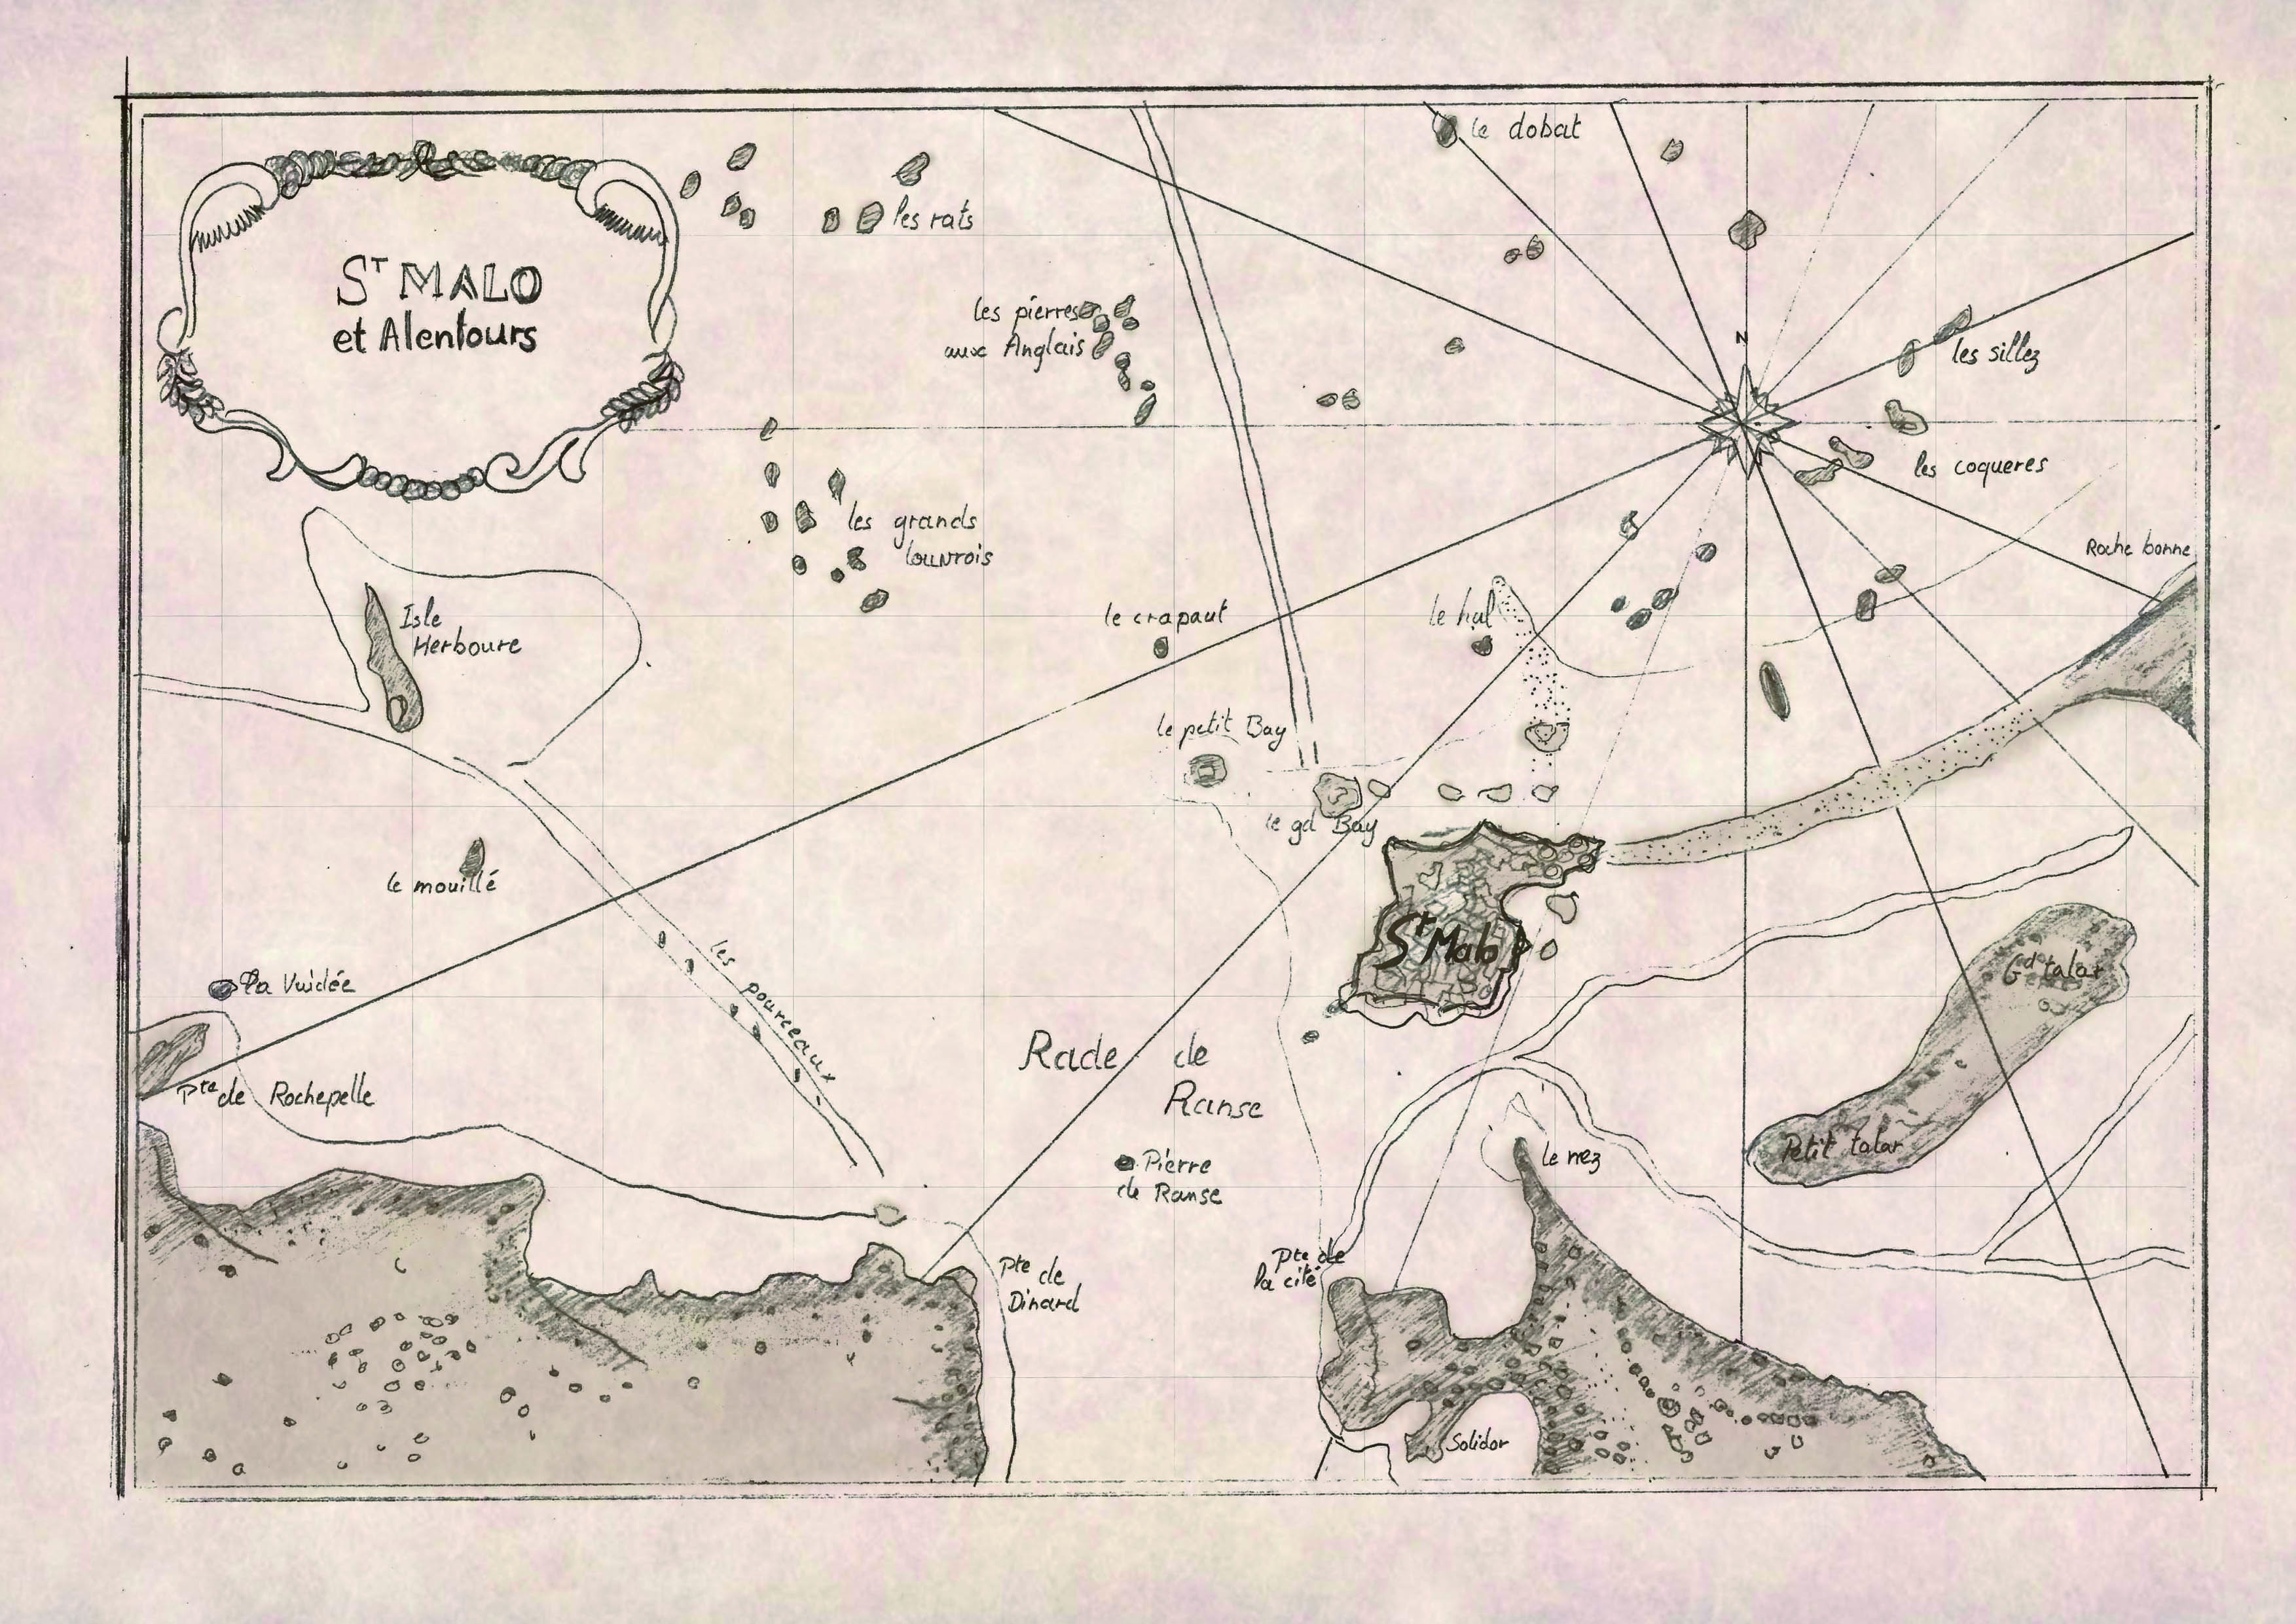 le dobat
les rats
Sᵀ MALO
et Alentours
les pierres
aux Anglais
N
les sillez
les coqueres
les grands
louvrois
Roche bonne
Isle
Herboure
le crapaut
le hal
le petit Bay
le gd Bay
le mouillé
Sᵗ Malo
la Vuidée
les pourceaux
Gd talar
Rade de
Ranse
Pte de Rochepelle
Petit talar
le nez
Pierre
de Ranse
Pte de
Dinard
Pte de
la cité
Solidor